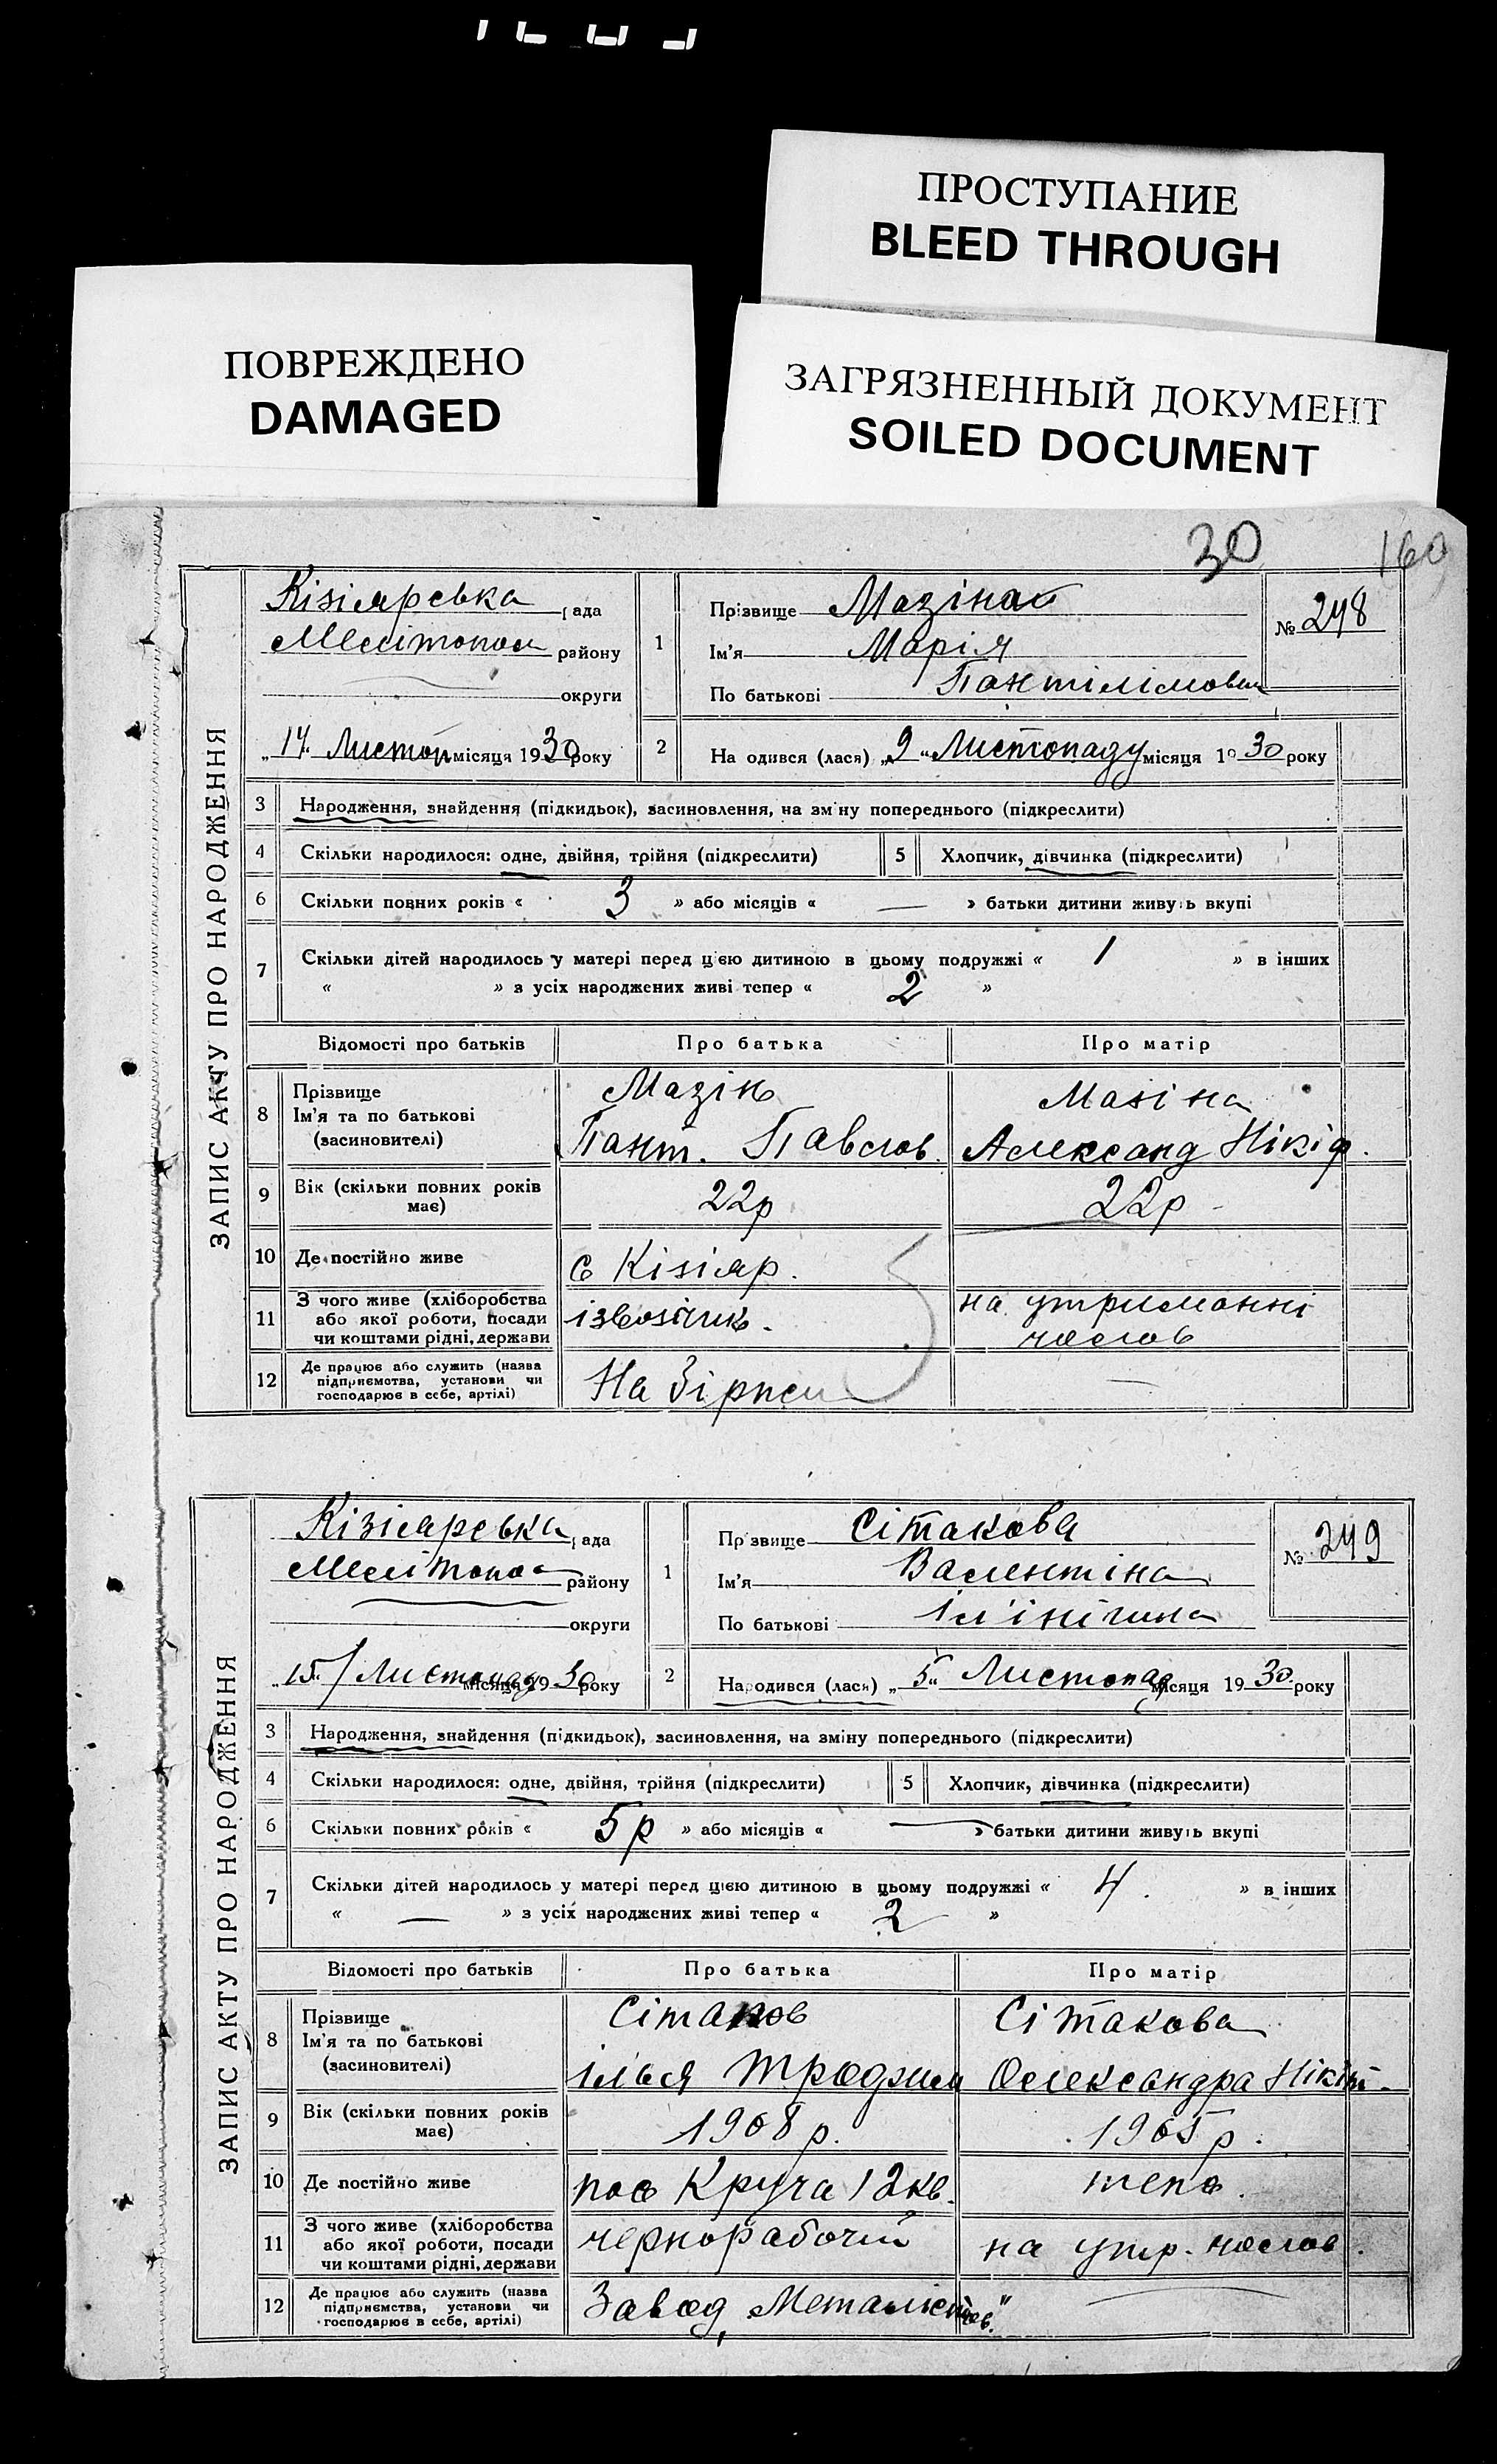 ПРОСТУПАНИЕ
BLEED THROUGH
ПОВРЕЖДЕНО
DAMAGED
ЗАГРЯЗНЕННЫЙ ДОКУМЕНТ
SOILED DOCUMENT
30
160
ЗАПИС АКТУ ПРО НАРОДЖЕННЯ
Кізіярська рада
Мелітопол району
округи
1
Прізвище Мазіна
Ім'я Марія
По батькові
№ 248
„17" Листоп місяця 1930 року
2
На одився (лася) „9" Листопаду місяця 1930 року
3 Народження, знайдення (підкидьок), засиновлення, на зміну попереднього (підкреслити)
4 Скільки народилося: одне, двійня, трійня (підкреслити)
5 Хлопчик, дівчинка (підкреслити)
6 Скільки повних років « 3 » або місяців « — » батьки дитини живуть вкупі
7 Скільки дітей народилось у матері перед цією дитиною в цьому подружжі « 1 » в інших
« » з усіх народжених живі тепер « 2 »
Відомості про батьків
Про батька
Про матір
8 Прізвище
Ім'я та по батькові
(засиновителі)
Мазін
Пант. Павлов.
Мазіна
Александ Нікіф.
9 Вік (скільки повних років має)
22р
22р
10 Де постійно живе
с Кізіяр.
11 З чого живе (хліборобства або якої роботи, посади чи коштами рідні, держави
ізвозчик.
на утриманні
12 Де працює або служить (назва підприємства, установи чи господарює в себе, артілі)
На
—
ЗАПИС АКТУ ПРО НАРОДЖЕННЯ
Кізіярська рада
Мелітопол району
округи
1
Прізвище Сітакова
Ім'я Валентіна
По батькові Іллінічна
№ 249
„15" Листопад місяця 1930 року
2
Народився (лася) „5" Листопад місяця 1930 року
3 Народження, знайдення (підкидьок), засиновлення, на зміну попереднього (підкреслити)
4 Скільки народилося: одне, двійня, трійня (підкреслити)
5 Хлопчик, дівчинка (підкреслити)
6 Скільки повних років « 5 р » або місяців « — » батьки дитини живуть вкупі
7 Скільки дітей народилось у матері перед цією дитиною в цьому подружжі « 4 » в інших
« — » з усіх народжених живі тепер « 2 »
Відомості про батьків
Про батька
Про матір
8 Прізвище
Ім'я та по батькові
(засиновителі)
Сітаков
Ілья
Сітакова
Олександра Нікіт.
9 Вік (скільки повних років має)
1908 р.
1905 р.
10 Де постійно живе
пос Круча 12 кв.
11 З чого живе (хліборобства або якої роботи, посади чи коштами рідні, держави
чернорабочий
на утр.
12 Де працює або служить (назва підприємства, установи чи господарює в себе, артілі)
Завод